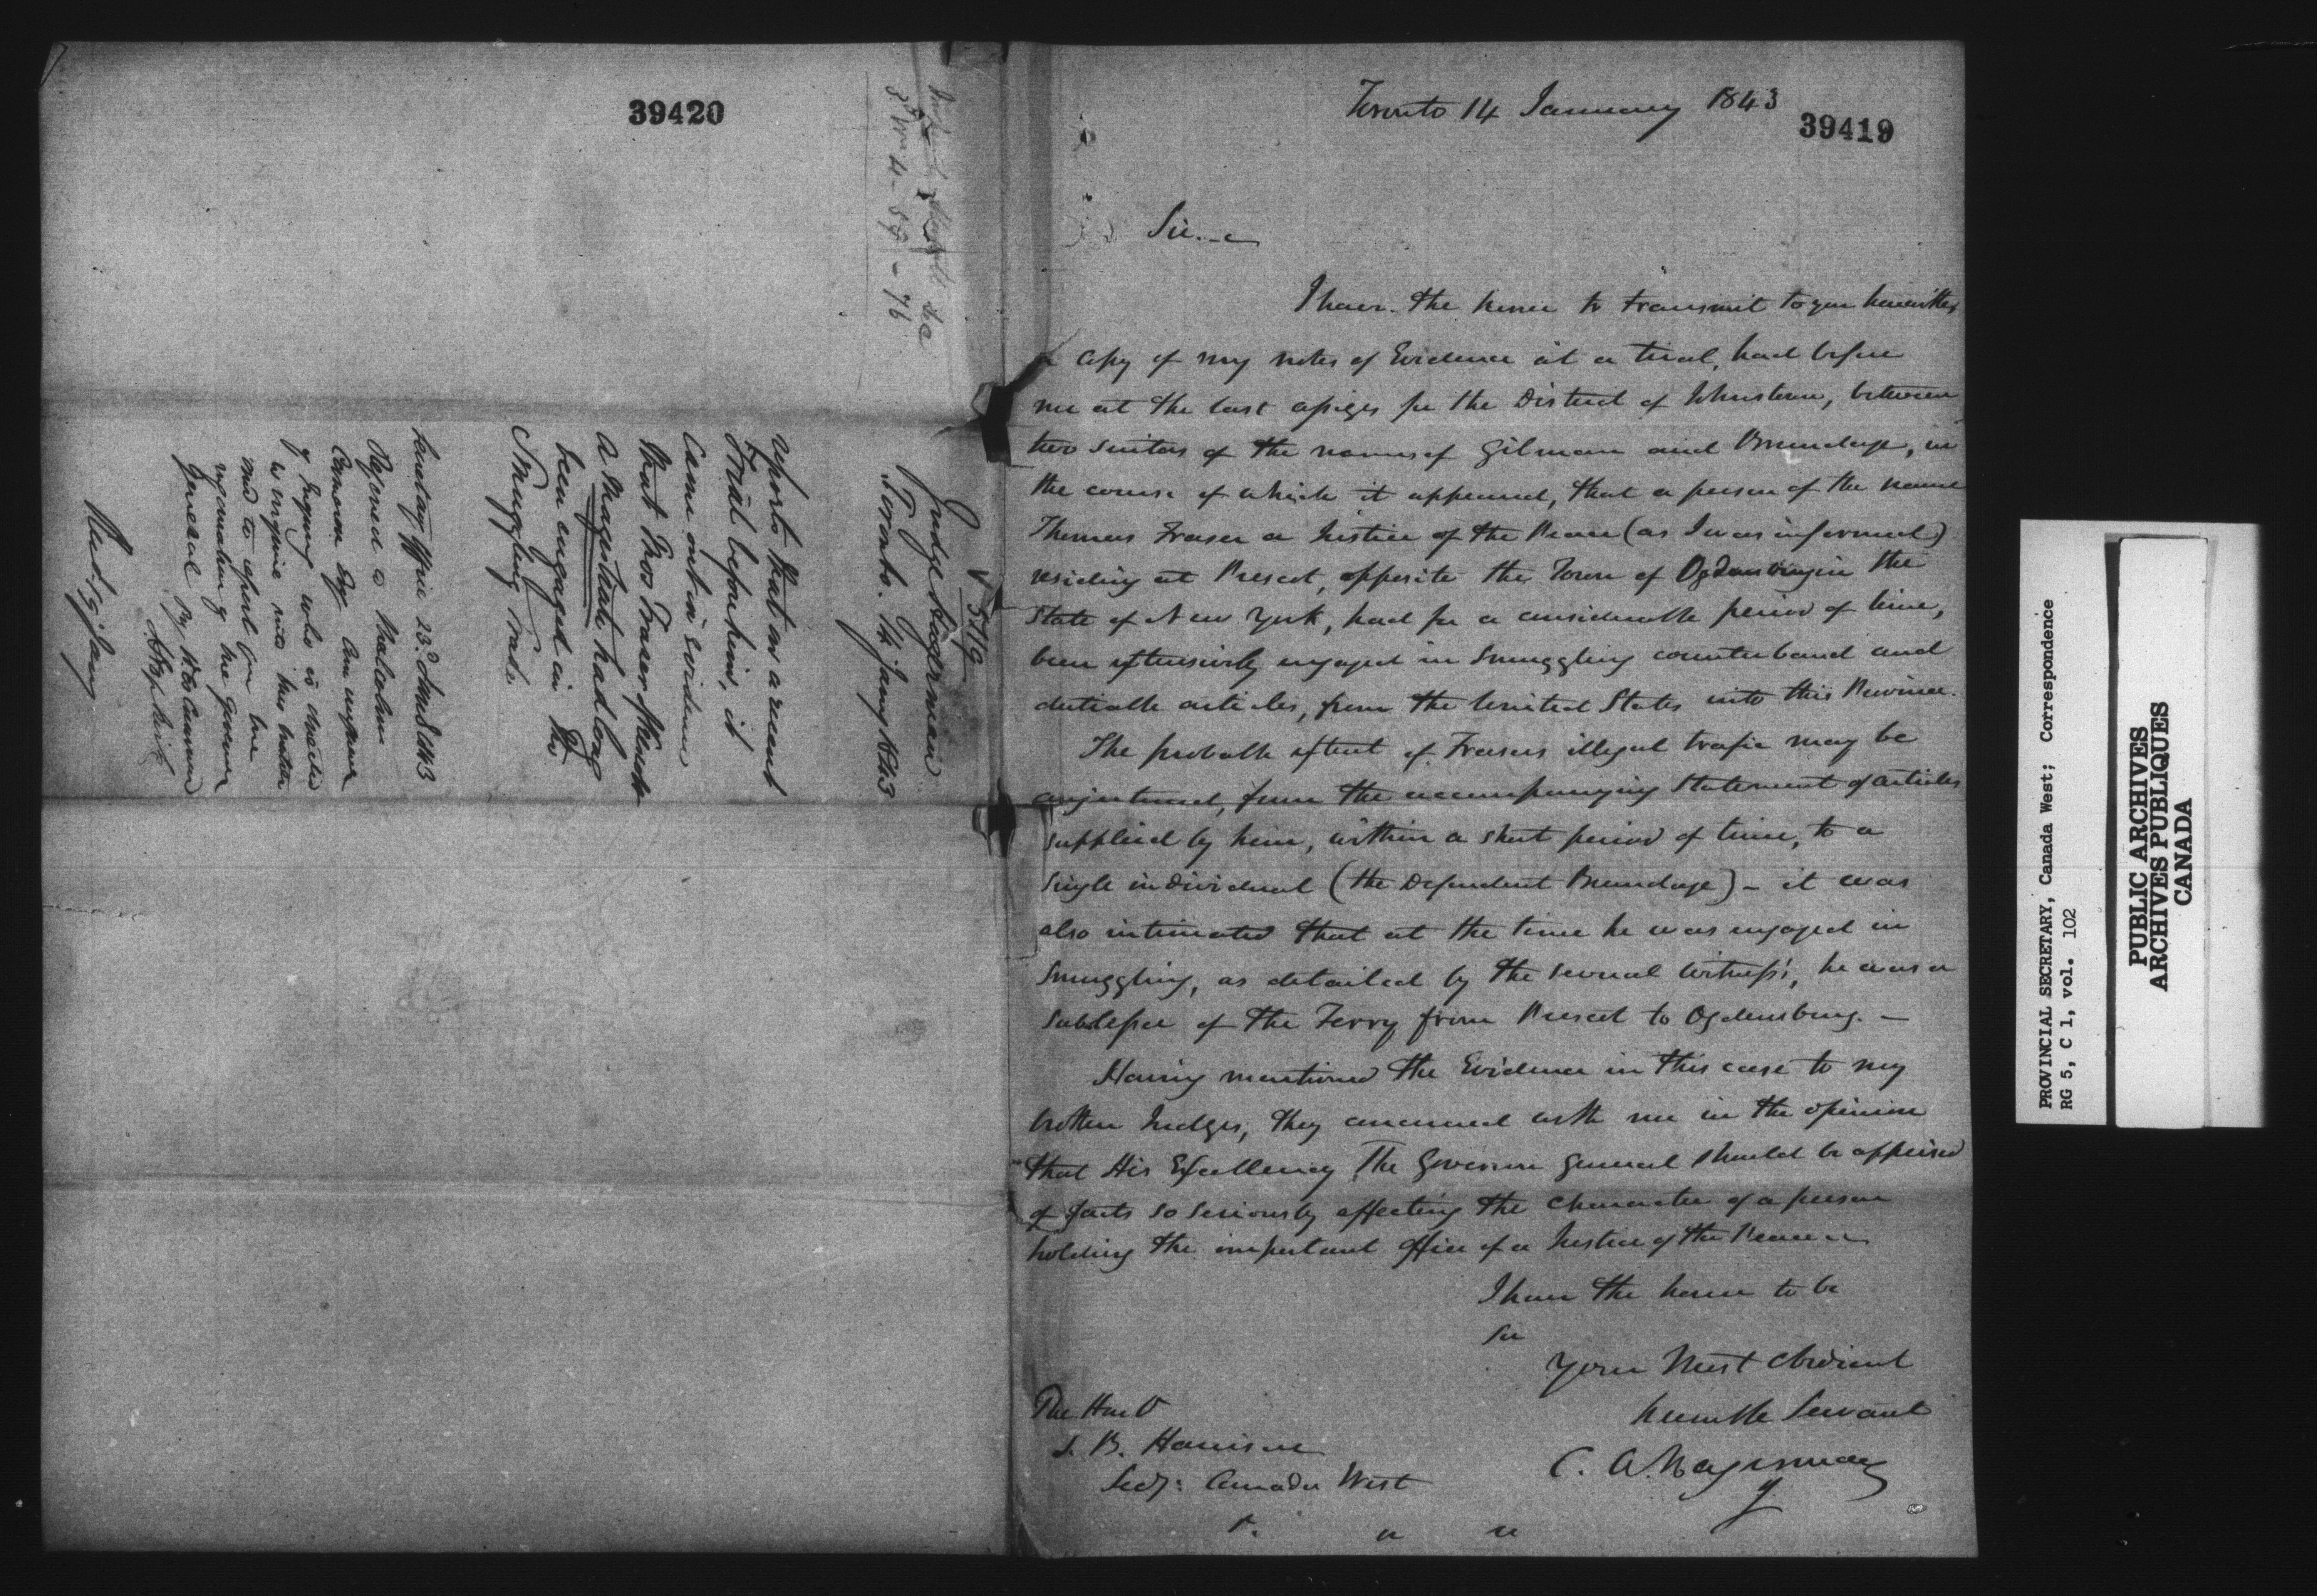 39420
Judge Hagerman
Toronto. 14 Jany 1843
reports that on a recent
Trial before him, it
came out in evidence
that Thos Fraser
a Magistrate had long
been engaged in the
Smuggling Trade
Secretary's Office 23d March 1843
Referred to Malcolm
Cameron Esqr Commissioner
of Inquiry who is directed
to enquire into this matter
and to report for the
information of the Governor
General By His Command
Toronto 14 January 1843
39419
Sir.
I have the honor to transmit to you herewith
a copy of my notes of Evidence at a trial, had before
me at the last assizes for the District of Johnstown, between
two suitors of the names of Gilman and Brundage, in
the course of which it appeared, that a person of the name
Thomas Fraser a Justice of the Peace (as I was informed)
residing at Prescot, opposite the Town of Ogdensburg in the
State of New York, had for a considerable period of time,
been extensively engaged in Smuggling counterband and
dutiable articles, from the United States into this Province.
The probable extent of Frasers illegal trafic may be
conjectured, from the accompanying Statement of articles
supplied by him, within a short period of time, to a
single individual (the Defendent Brundage) - it was
also intimated that at the time he was engaged in
Smuggling, as detailed by the several witness's, he was a
Sublessee of the Ferry from Prescot to Ogdensburg. -
Having mentioned the Evidence in this case to my
brother Judges, they concurred with me in the opinion
that His Excellency The Governor General should be apprised
of facts so seriously affecting the character of a person
holding the important office of a Justice of the Peace
I have the honor to be
Sir
Your Most obedient
humble Servant
C. A. Hagerman
The Honb
S. B. Harrison
Secy: Canada West
PROVINCIAL SECRETARY, Canada West; Correspondence
RG 5, C 1, vol. 102
PUBLIC ARCHIVES
ARCHIVES PUBLIQUES
CANADA